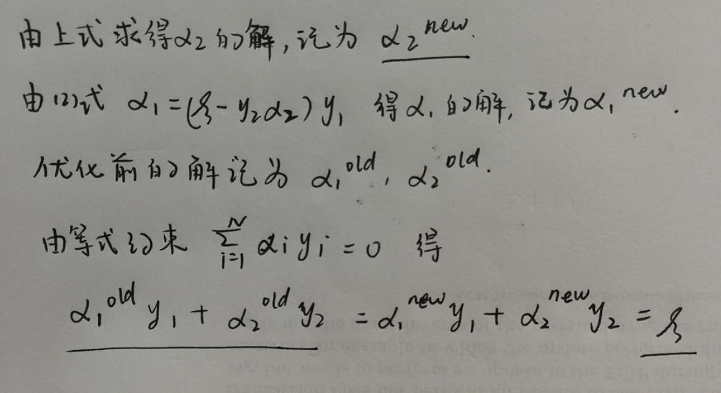 由上式求得α₂的解,记为 α₂ⁿᵉʷ.
由(2)式 α₁=(ξ-y₂α₂)y₁ 得α₁的解, 记为α₁ⁿᵉʷ.
优化前的解记为 α₁ᵒˡᵈ, α₂ᵒˡᵈ.
由等式约束 ∑ᵢ₌₁ᴺ αᵢyᵢ=0 得
α₁ᵒˡᵈy₁+α₂ᵒˡᵈy₂=α₁ⁿᵉʷy₁+α₂ⁿᵉʷy₂=ξ